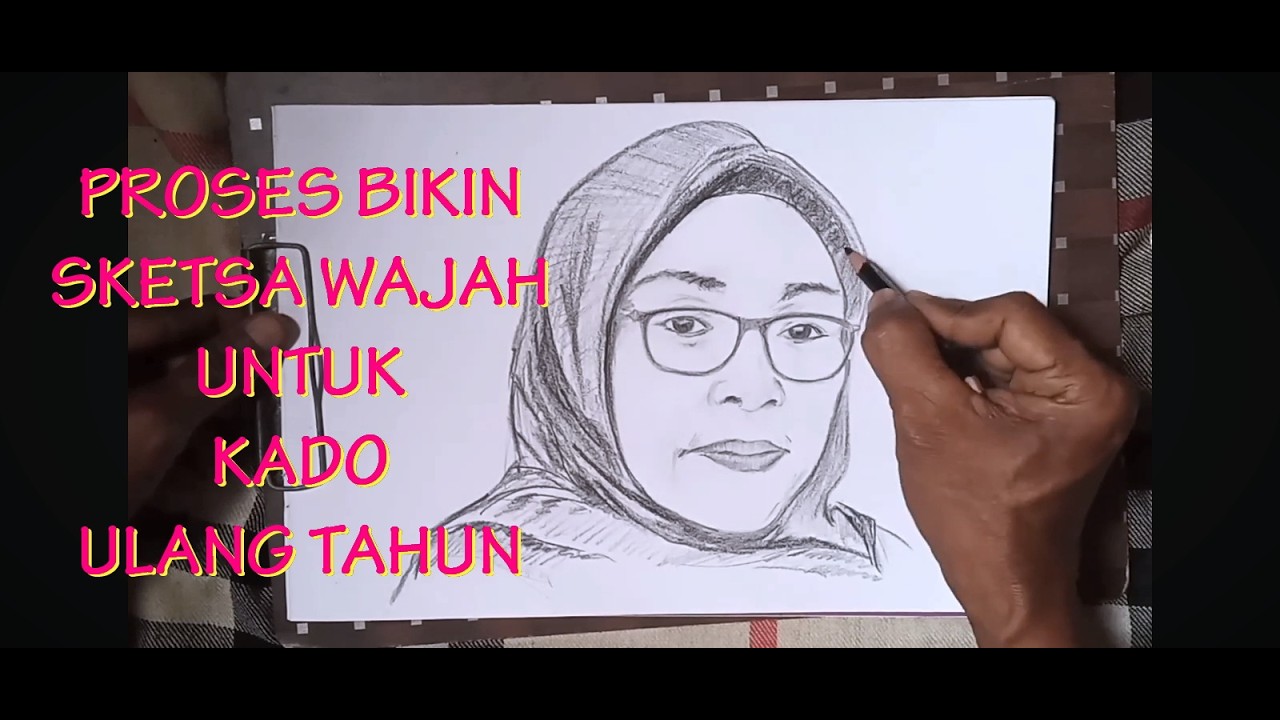 PROSES BIKIN
SKETSA WAJAH
UNTUK
KADO
ULANG TAHUN